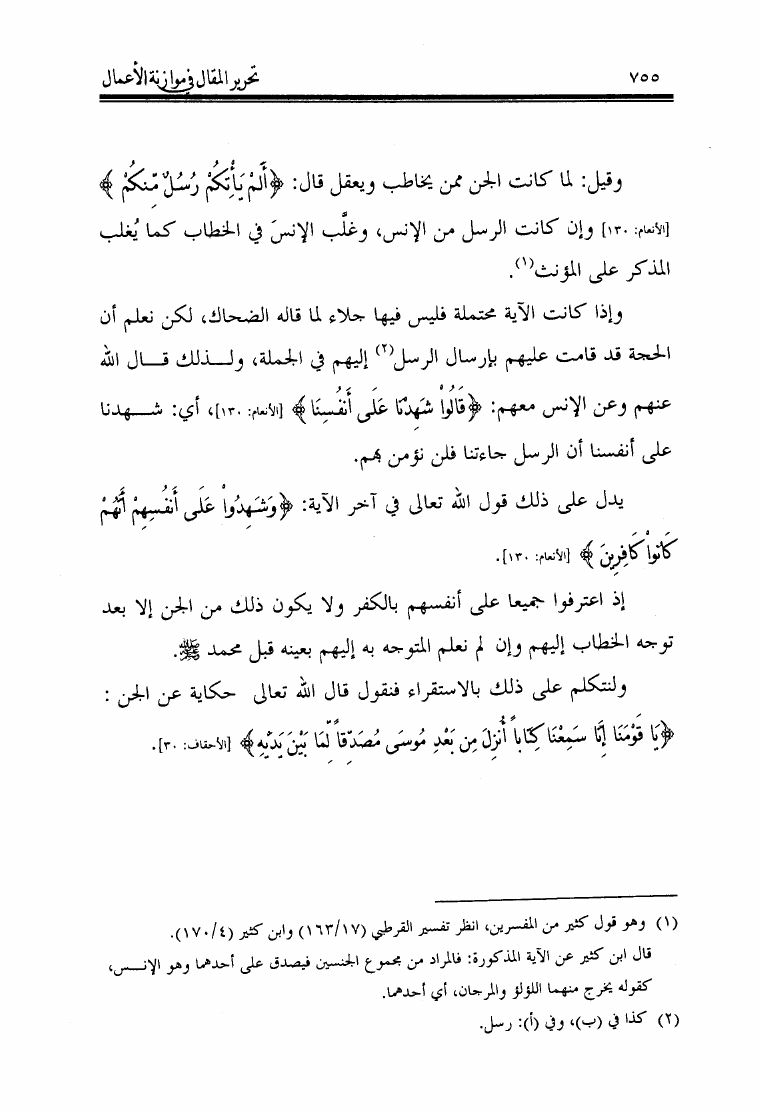 تحرير المقال في موازنة الأعمال ٧٥٥
وقيل: لما كانت الجن ممن يخاطب ويعقل قال: ﴿أَلَمْ يَأْتِكُمْ رُسُلٌ مِّنكُمْ﴾
[الأنعام: ١٣٠] وإن كانت الرسل من الإنس، وغلَّب الإنسَ في الخطاب كما يُغلب
المذكر على المؤنث(١).
وإذا كانت الآية محتملة فليس فيها جلاء لما قاله الضحاك، لكن نعلم أن
الحجة قد قامت عليهم بإرسال الرسل(٢) إليهم في الجملة، ولــذلك قــال الله
عنهم وعن الإنس معهم: ﴿قَالُواْ شَهِدْنَا عَلَى أَنفُسِنَا﴾ [الأنعام: ١٣٠]، أي: شــهدنا
على أنفسنا أن الرسل جاءتنا فلن نؤمن بهم.
يدل على ذلك قول الله تعالى في آخر الآية: ﴿وَشَهِدُواْ عَلَى أَنفُسِهِمْ أَنَّهُمْ
كَانُواْ كَافِرِينَ﴾ [الأنعام: ١٣٠].
إذ اعترفوا جميعا على أنفسهم بالكفر ولا يكون ذلك من الجن إلا بعد
توجه الخطاب إليهم وإن لم نعلم المتوجه به إليهم بعينه قبل محمد ﷺ.
ولنتكلم على ذلك بالاستقراء فنقول قال الله تعالى حكاية عن الجن :
﴿يَا قَوْمَنَا إِنَّا سَمِعْنَا كِتَاباً أُنزِلَ مِن بَعْدِ مُوسَى مُصَدِّقاً لِّمَا بَيْنَ يَدَيْهِ﴾ [الأحقاف: ٣٠].
(١) وهو قول كثير من المفسرين، انظر تفسير القرطبي (١٦٣/١٧) وابن كثير (١٧٠/٤).
قال ابن كثير عن الآية المذكورة: فالمراد من مجموع الجنسين فيصدق على أحدهما وهو الإنــس،
كقوله يخرج منهما اللؤلؤ والمرجان، أي أحدهما.
(٢) كذا في (ب)، وفي (أ): رسل.